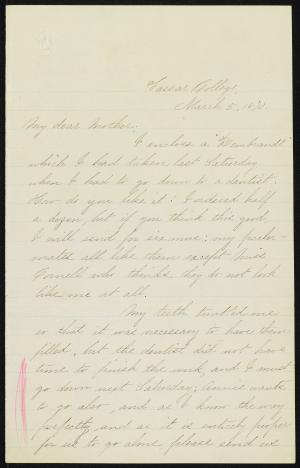 Vassar College,
March 5, 187
My dear Mother,
I enclose a "Rembrandt"
which I had taken last Saturday
when I had to go down to a dentist.
How do you like it? I ordered half
a dozen, but if you think this good,
I will send for six more; my parlor-
mates all like them except Miss
who thinks they do not look
like me at all.
My teeth troubled me
so that it was necessary to have them
filled, but the dentist did not have
time to finish the work, and I must
go down next Saturday; wants
to go also, and as I know the way
perfectly and as it is entirely proper
for us to go alone please send me